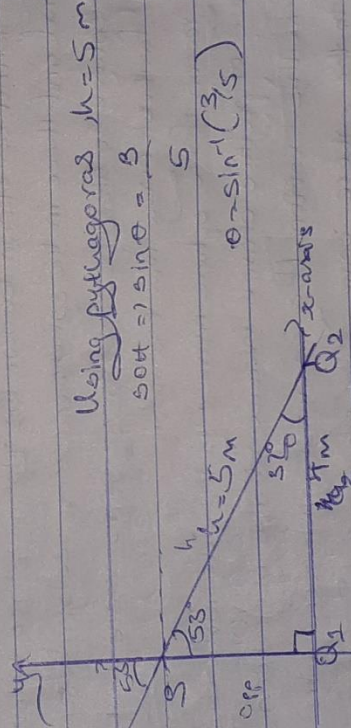 Using pythagoras, h=5m
SOH => sin θ = 3
5
θ = sin⁻¹(3/5)
y
53°
3
53°
h
h=5m
opp
37°
4m
x-axis
Q1
Q2